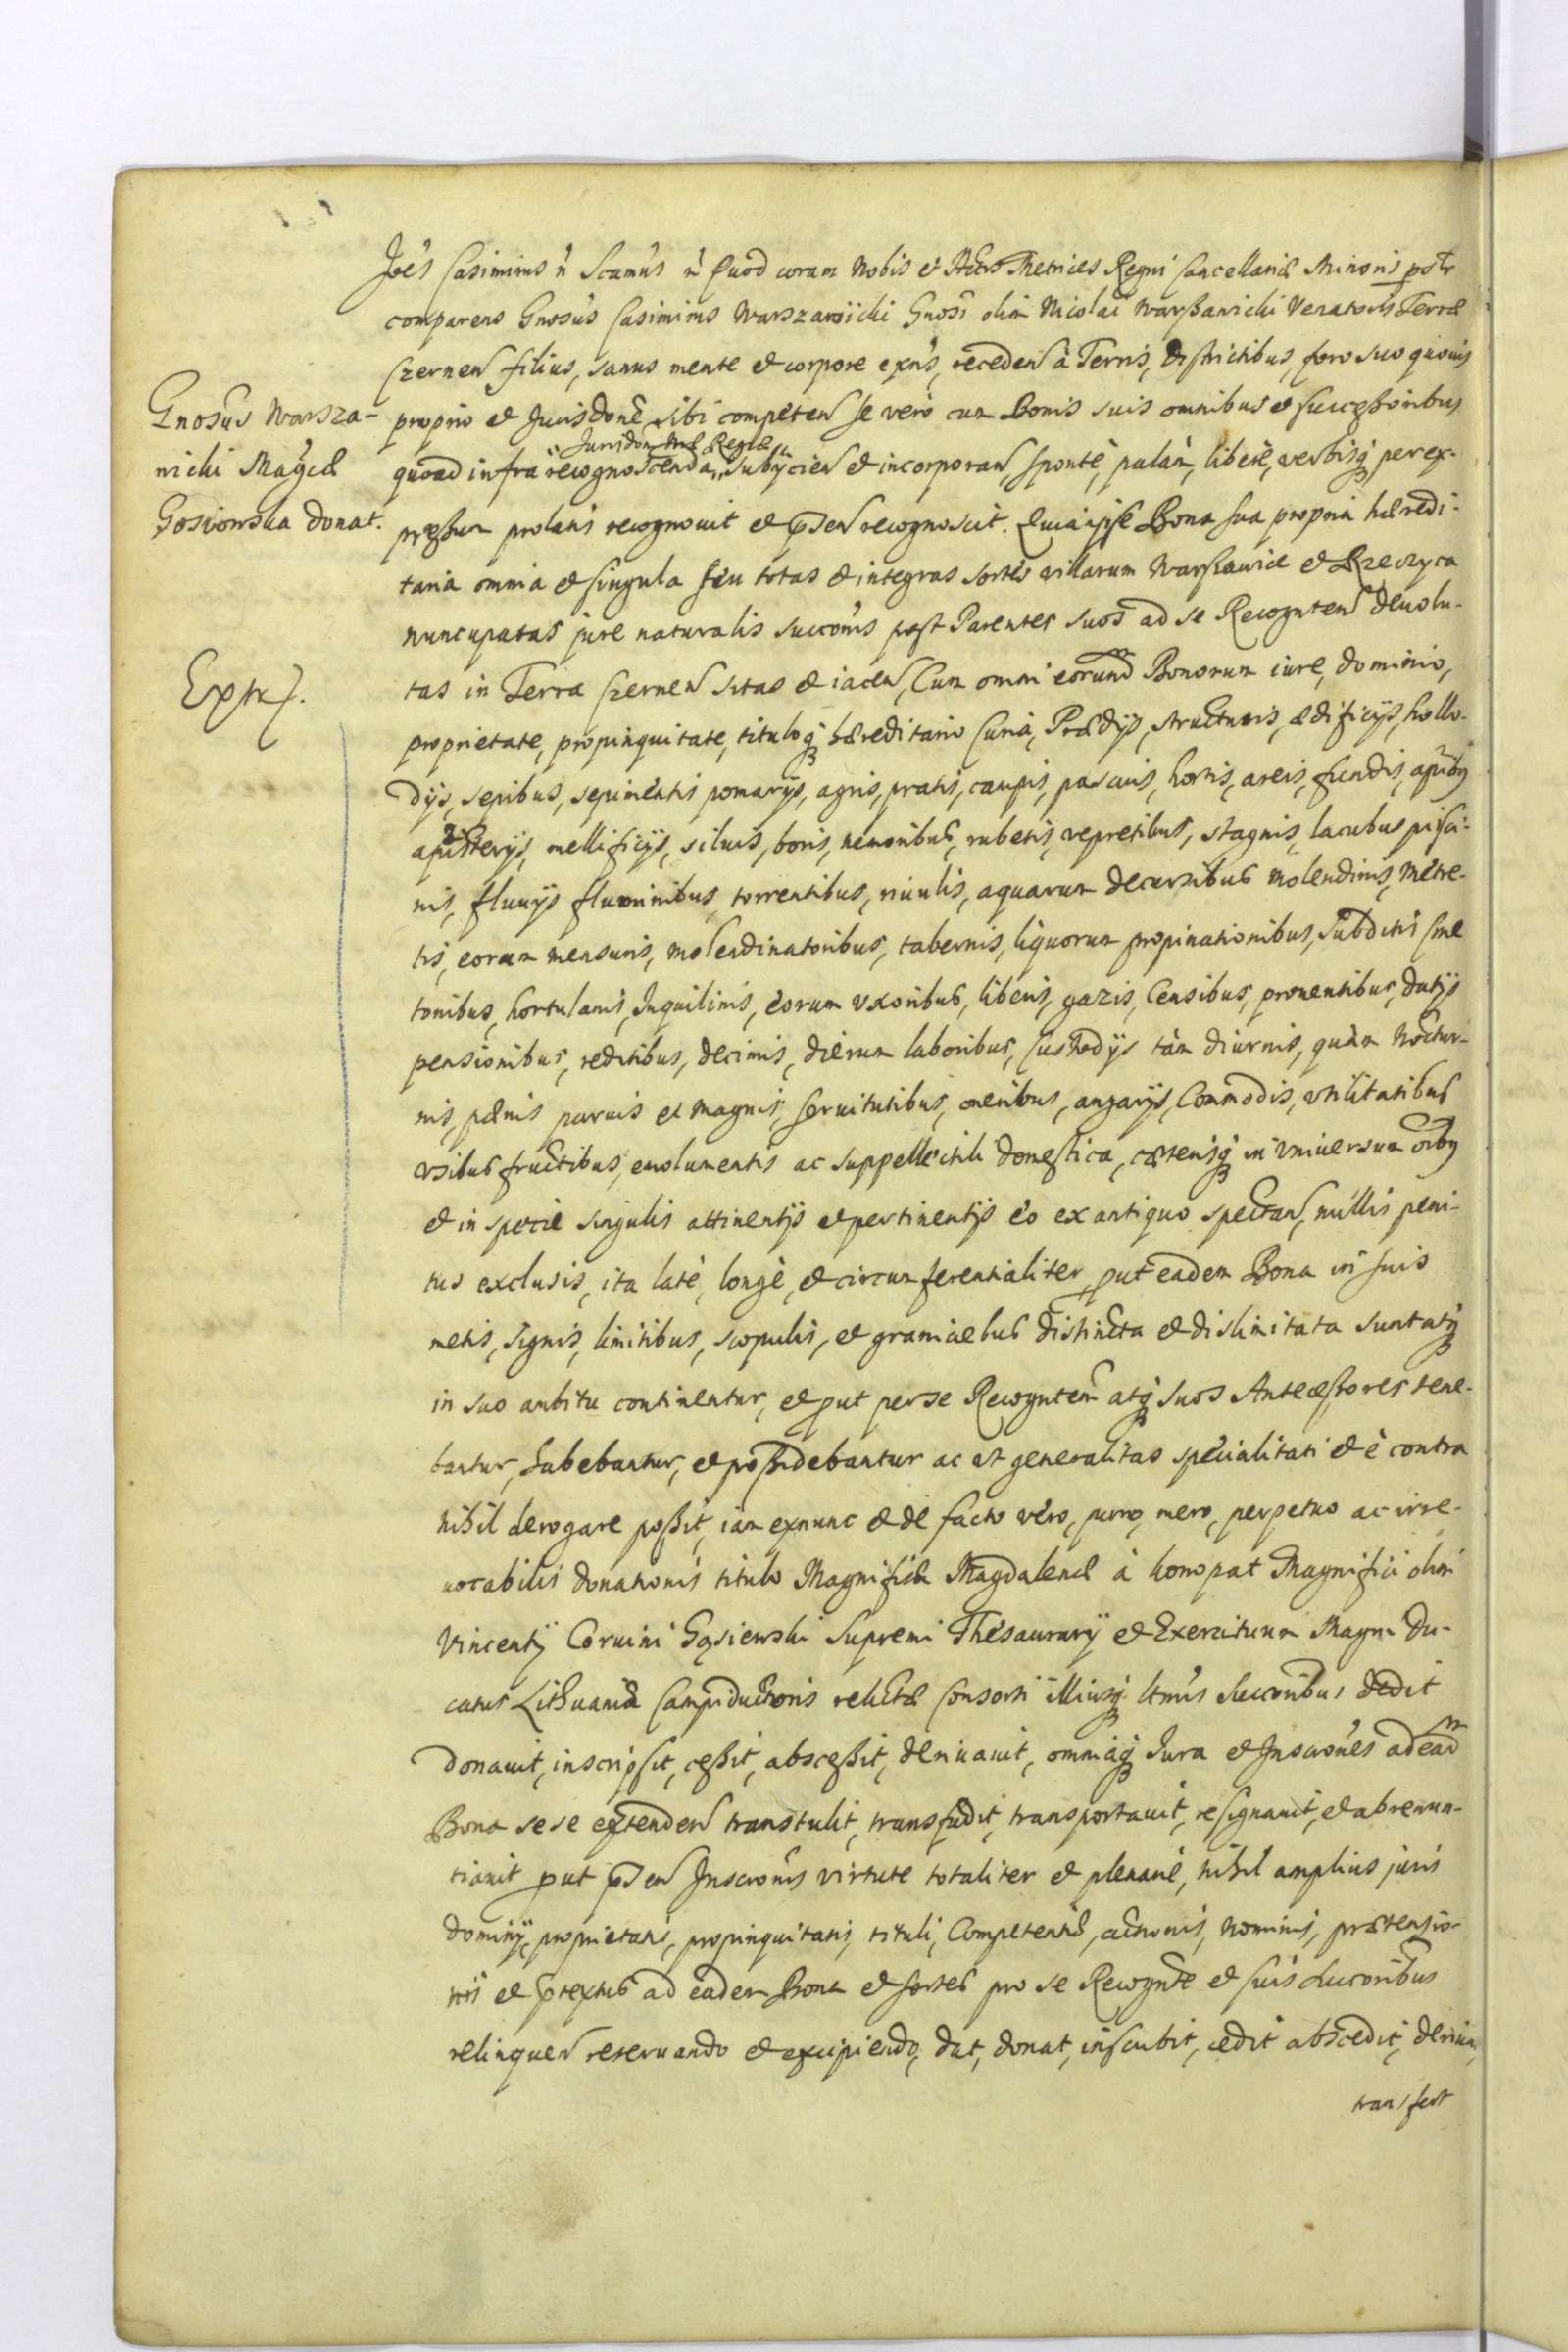 Joēs Casimirus n̄ Scamūs n̄ Quod coram Nobis et Actis Metrices Regni Cancellariæ Minoris pstr
comparens Gnosūs Casimirus Warszawicki Gnosī olim Nicolai Warszawicki Venatoris Terræ
Czernen filius, sanus mente et corpore exn̄s, receden à Terris, districtibus, foro suo quouis
proprio et Jurisdonē sibi competen se verò cum Bonis suis omnibus et successoribus
Jurisdon Regiæ
quoad infra recognoscenda, subÿcien et incorporan, sponte, palàm, liberè, verbisq per ex-
pressum prolatis recognouit et p̄sen recognoscit. Quia ipse Bona sua propria hæredi-
taria omnia et singula seu totas et integras sortes villarum Warszawice et Rzeczyca
nuncupatas jure naturalis succonis post Parentes suos ad se Recognten deuolu-
tas in Terra Czernen sitas et iacen, Cum omni eorund Bonorum iure, dominio,
proprietate, propinquitate, tituloq hæreditario Curia, Prædÿs, structuris, ædificÿs, hollo-
dÿs, sepibus, sepimentis pomarÿs, agris, pratis, campis, pascuis, hortis, areis, fundis, apibq
apisterÿs, mellificÿs, siluis, boris, nemoribus, rubetis, vepretibus, stagnis, lacubus pisci-
nis, fluuÿs fluminibus, torrentibus, riuulis, aquarum decursibus molendinis, metre-
tis, eorum mensuris, molendinatoribus, tabernis, liquorum propinationibus, subditis Cme
tonibus, hortulanis, Inquilinis, eorum vxoribus, liberis, gazis, Censibus, prouentibus, datÿs
pensionibus, reditibus, decimis, dierum laboribus, Custodÿs tàm diurnis, quàm noctur-
nis, pænis paruis et magnis, seruitutibus, oneribus, angarÿs, Commodis, vtilitatibus
vsibus fructibus, emolumentis ac suppellectili domestica, cæterisq in vniuersum oibq
et in specie singulis attinentÿs et pertinentÿs eò ex antiquo spectan, nullis peni-
tus exclusis, ita latè, longè, et circumferentialiter, put eadem Bona in suis
metis, signis, limitibus, scopulis, et graniciebus distincta et dislimitata sunt atq
in suo ambitu continentur, et put per se Recogntem atq suos Antecessores tene-
bantur, habebantur, et possidebantur ac vt generalitas specialitati et è contra
nihil derogare possit, iam exnunc et de facto vero, puro, mero, perpetuo ac irre-
uocabilis donationis titulo Magnificæ Magdalenæ à konopat Magnifici olim
Vincentÿ Coruini Gąsiewski Supremi Thesaurarÿ et Exercituum Magni Du-
catus Lithuaniæ Campiductoris relictæ Consorti illiusq ltmis succoribus dedit
donauit, inscripsit, cessit, abscessit, deriuauit, omniaq Jura et Inscronēs ad ead
Bona sese extenden transtulit, transfudit, transportauit, resignauit, et abrenun-
tiauit put p̄sen Inscronis virtute totaliter et plenariè, nihil amplius juris
dominÿ, proprietatis, propinquitatis, tituli, Competentiæ, actionis, nominis, prætensio-
nis et ptextus ad eadem Bona et sortes pro se Recognte et suis succoribus
relinquen reseruando et excipiendo, dat, donat, inscribit, cedit abscedit, deriua,
transfert
Gnosūs Warsza-
wicki Magcæ
Gosiowska donat.
Extr.